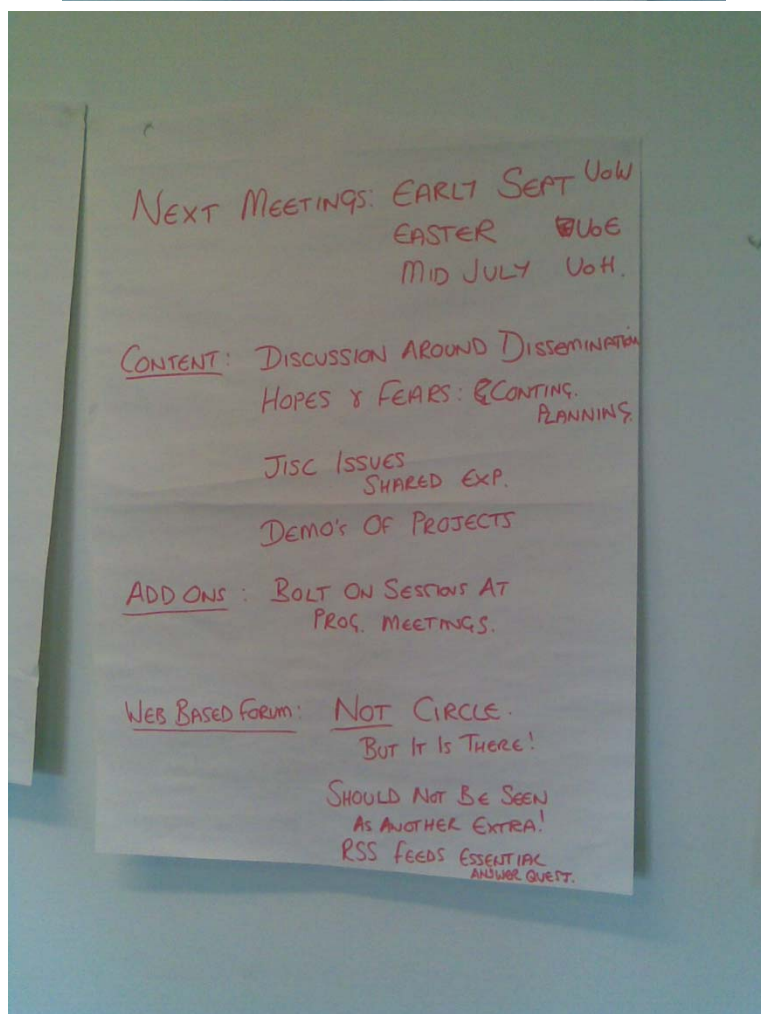 NEXT MEETINGS: EARLY SEPT UoW
EASTER UoE
MID JULY UoH.
CONTENT: DISCUSSION AROUND DISSEMINATION
HOPES & FEARS: CONTING.
PLANNING.
JISC ISSUES
SHARED EXP.
DEMO'S OF PROJECTS
ADD ONS: BOLT ON SESSIONS AT
PROG. MEETINGS.
WEB BASED FORUM: NOT CIRCLE.
BUT IT IS THERE!
SHOULD NOT BE SEEN
AS ANOTHER EXTRA!
RSS FEEDS ESSENTIAL
ANSWER QUEST.